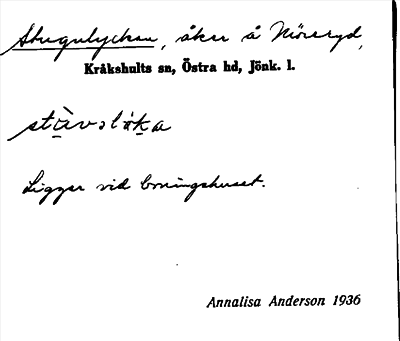 Stugulyckan, åker å Mörsryd,
Kråkshults sn, Östra hd, Jönk. l.
Ligger vid boningshuset.
Annalisa Anderson 1936